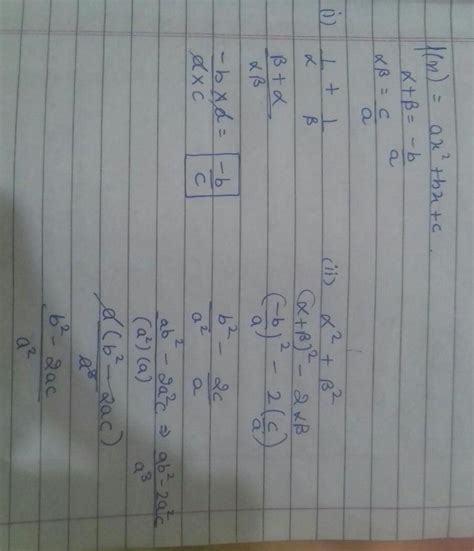 f(n) = ax² + bx + c.
α + β = -b/a
αβ = c/a
(i) 1/α + 1/β
β + α / αβ
-b × a / a × c = -b/c
(ii) α² + β²
(α + β)² - 2αβ
(-b/a)² - 2(c/a)
b²/a² - 2c/a
ab² - 2a²c / (a²)(a) ⇒ ab² - 2a²c / a³
a(b² - 2ac) / a³
b² - 2ac / a²